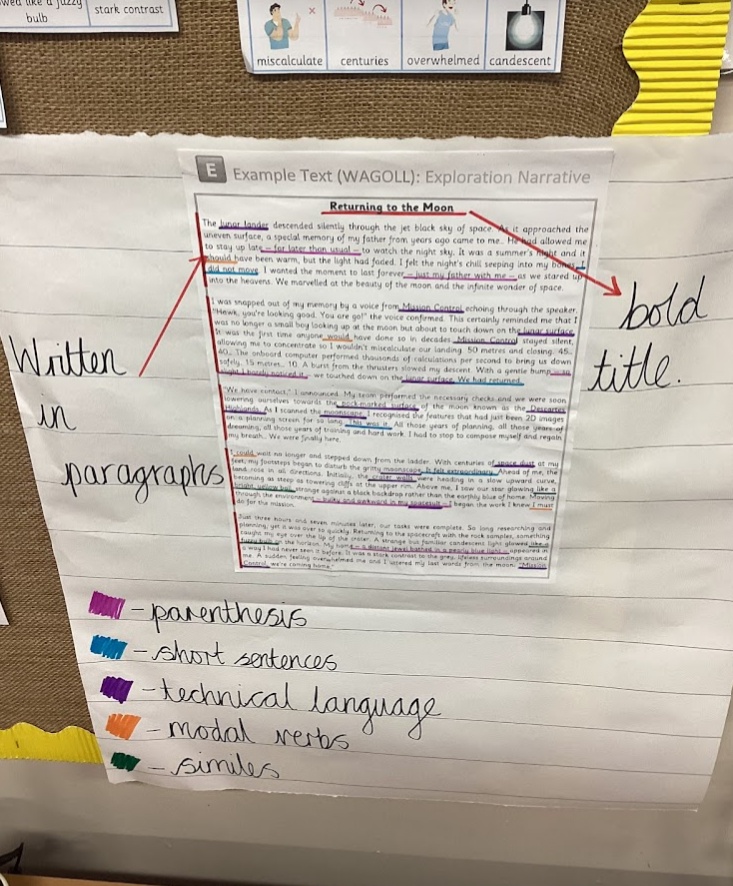 wed like a fuzzy
bulb
stark contrast
miscalculate
centuries
overwhelmed
candescent
E Example Text (WAGOLL): Exploration Narrative
Returning to the Moon
The lunar lander descended silently through the jet black sky of space. As it approached the
uneven surface, a special memory of my father from years ago came to me. He had allowed me
to stay up late – far later than usual – to watch the night sky. It was a summer's night and it
should have been warm, but the light had faded. I felt the night's chill seeping into my bones. I
did not move. I wanted the moment to last forever – just my father with me – as we stared up
into the heavens. We marvelled at the beauty of the moon and the infinite wonder of space.
I was snapped out of my memory by a voice from Mission Control echoing through the speaker.
"Hawk, you're looking good. You are go!" the voice confirmed. This certainly reminded me that I
was no longer a small boy looking up at the moon but about to touch down on the lunar surface.
It was the first time anyone would have done so in decades. Mission Control stayed silent,
allowing me to concentrate so I wouldn't miscalculate our landing. 50 metres and closing. 45.
40. The onboard computer performed thousands of calculations per second to bring us down
safely. 15 metres. 10. A burst from the thrusters slowed my descent. With a gentle bump – so
slight I barely noticed it – we touched down on the lunar surface. We had returned.
"We have contact," I announced. My team performed the necessary checks and we were soon
lowering ourselves towards the pock-marked surface of the moon known as the Descartes
Highlands. As I scanned the moonscape, I recognised the features that had just been 2D images
on a planning screen for so long. This was it. All those years of planning, all those years of
dreaming, all those years of training and hard work. I had to stop to compose myself and regain
my breath. We were finally here.
I could wait no longer and stepped down from the ladder. With centuries of space dust at my
feet, my footsteps began to disturb the gritty moonscape. It felt extraordinary. Ahead of me, the
land rose in all directions. Initially, the crater walls were heading in a slow upward curve,
becoming as steep as towering cliffs at the upper rim. Above me, I saw our star glowing like a
bright, yellow ball strange against a black backdrop rather than the earthly blue of home. Moving
through the environment – bulky and awkward in my spacesuit – I began the work I knew I must
do for the mission.
Just three hours and seven minutes later, our tasks were complete. So long researching and
planning, yet it was over so quickly. Returning to the spacecraft with the rock samples, something
caught my eye over the lip of the crater. A strange but familiar candescent light glowed like a
fuzzy bulb on the horizon. My home – a distant jewel bathed in a pearly blue light – appeared in
a way I had never seen it before. It was a stark contrast to the grey, lifeless surroundings around
me. A sudden feeling overwhelmed me and I uttered my last words from the moon. "Mission
Control, we're coming home."
Written
in
paragraphs
bold
title.
– parenthesis
– short sentences
– technical language
– modal verbs
– similes